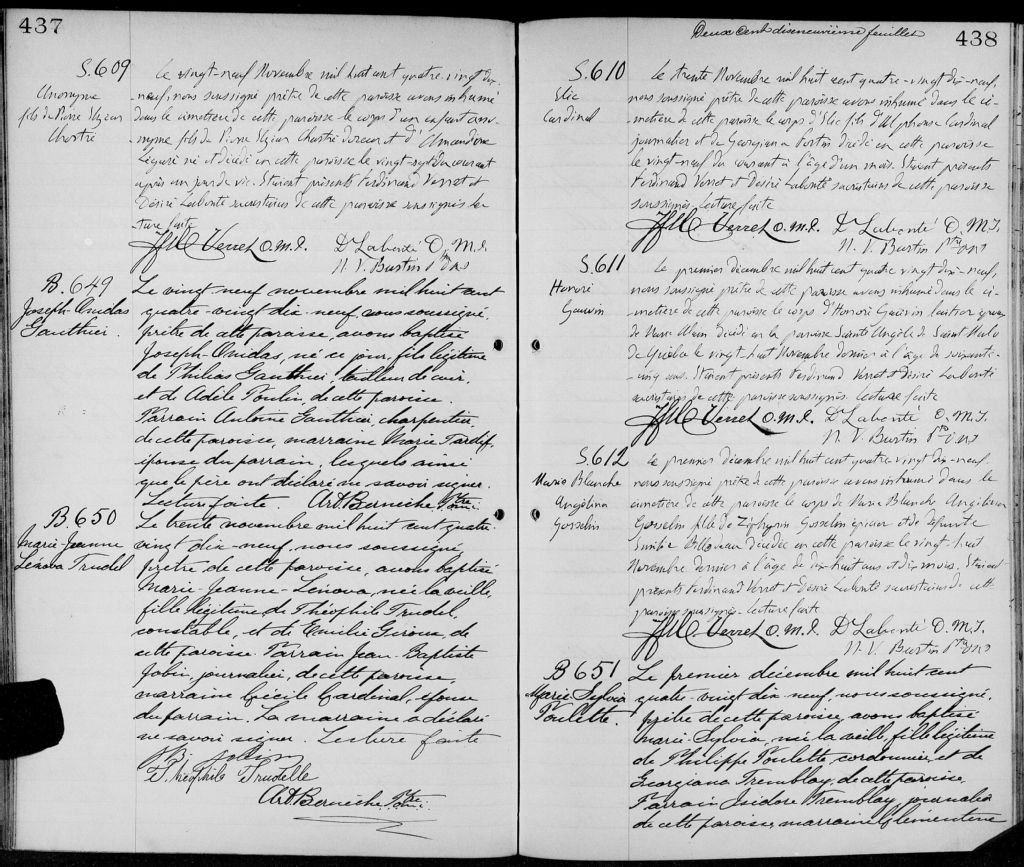 437
S.609
Anonyme
fils de Pierre Elzéar
Chartré
Le vingt-neuf Novembre mil huit cent quatre-vingt dix-
-neuf, nous soussigné prêtre de cette paroisse avons inhumé
dans le cimetière de cette paroisse le corps d'un enfant ano-
nyme fils de Pierre Elzéar Chartré et d'Amandine
Légaré né et décédé en cette paroisse le vingt-sept du courant
après un jour de vie. Etaient présents Ferdinand Verret et
Désiré Labonté sacristains de cette paroisse soussignés lec-
-ture faite
JfM Verret O.M.I. D Labonté O.M.I.
N. V. Burtin Ptre O.M.I
B.649
Joseph-Onidas
Gauthier.
Le vingt neuf novembre mil huit cent
quatre-vingt dix-neuf nous soussigné,
prêtre de cette paroisse, avons baptisé
Joseph-Onidas, né ce jour, fils légitime
de Philéas Gauthier, tailleur de cuir,
et de Adèle Poulin, de cette paroisse.
Parrain Antoine Gauthier, charpentier,
de cette paroisse, marraine Marie Tardif,
épouse du parrain, lesquels ainsi
que le père ont déclaré ne savoir signer.
Lecture faite. Art. Berniche Ptre O.M.I.
B.650
Marie-Jeanne
Lenova Trudel
Le trente novembre mil huit cent quatre-
vingt dix-neuf, nous soussigné,
prêtre de cette paroisse, avons baptisé
Marie-Jeanne-Lenova, née la veille,
fille légitime de Théophile Trudel,
constable, et de Emilie Giroux, de
cette paroisse. Parrain Jean-Baptiste
Jobin, journalier, de cette paroisse,
marraine Cécile Cardinal, épouse
du parrain. La marraine a déclaré
ne savoir signer. Lecture faite
J.Bt. Jobin
Théophile Trudelle
Art. Berniche, Ptre O.M.I.
Deux cent dixneuvième feuillet
438
S.610
Elie
Cardinal
Le trente Novembre mil huit cent quatre-vingt-dix-neuf,
nous soussigné prêtre de cette paroisse avons inhumé dans le ci-
-metière de cette paroisse le corps d'Elie fils d'Alphonse Cardinal
journalier et de Georgiana Fortin décédé en cette paroisse
le vingt-neuf du courant à l'âge d'un mois. Etaient présents
Ferdinand Verret et Désiré Labonté sacristains de cette paroisse
soussignés. Lecture faite
JfM Verret O.M.I. D Labonté O.M.I.
N. V. Burtin Ptre O.M.I
S.611
Honoré
Gauvin
Le premier décembre mil huit cent quatre vingt dix-neuf,
nous soussigné prêtre de cette paroisse avons inhumé dans le ci-
-metière de cette paroisse le corps d'Honoré Gauvin époux
de Marie Alain décédé en la paroisse Sainte Angèle de Saint Malo
de Québec le vingt huit Novembre dernier à l'âge de soixante-
-cinq ans. Etaient présents Ferdinand Verret et Désiré Labonté
sacristains de cette paroisse soussignés. Lecture faite
JfM Verret O.M.I. D Labonté O.M.I.
N. V. Burtin Ptre O.M.I
S.612
Marie Blanche
Angélina
Gosselin
Le premier décembre mil huit cent quatre-vingt dix-neuf
nous soussigné prêtre de cette paroisse avons inhumé dans le
cimetière de cette paroisse le corps de Marie Blanche Angélina
Gosselin fille de Zéphyrin Gosselin épicier et de défunte
Emilie Bilodeau décédée en cette paroisse le vingt-huit
Novembre dernier à l'âge de dix-huit ans et dix mois. Etaient
présents Ferdinand Verret et Désiré Labonté sacristains de cette
paroisse soussignés. Lecture faite
JfM Verret O.M.I. D Labonté O.M.I.
N. V. Burtin Ptre O.M.I
B.651
Marie-Sylvia
Poulette.
Le premier décembre mil huit cent
quatre-vingt dix neuf, nous soussigné,
prêtre de cette paroisse, avons baptisé
Marie-Sylvia, née la veille, fille légitime
de Philippe Poulette, cordonnier, et de
Georgiana Tremblay, de cette paroisse.
Parrain Isidore Tremblay, journalier
de cette paroisse, marraine Clémentine